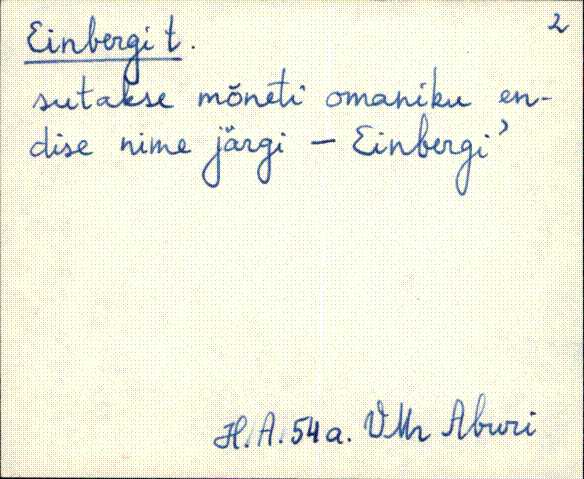 2
Einbergi t.
sutakse mõneti omaniku en-
dise nime järgi – Einbergi'
H. A. 54 a. VMr Aburi